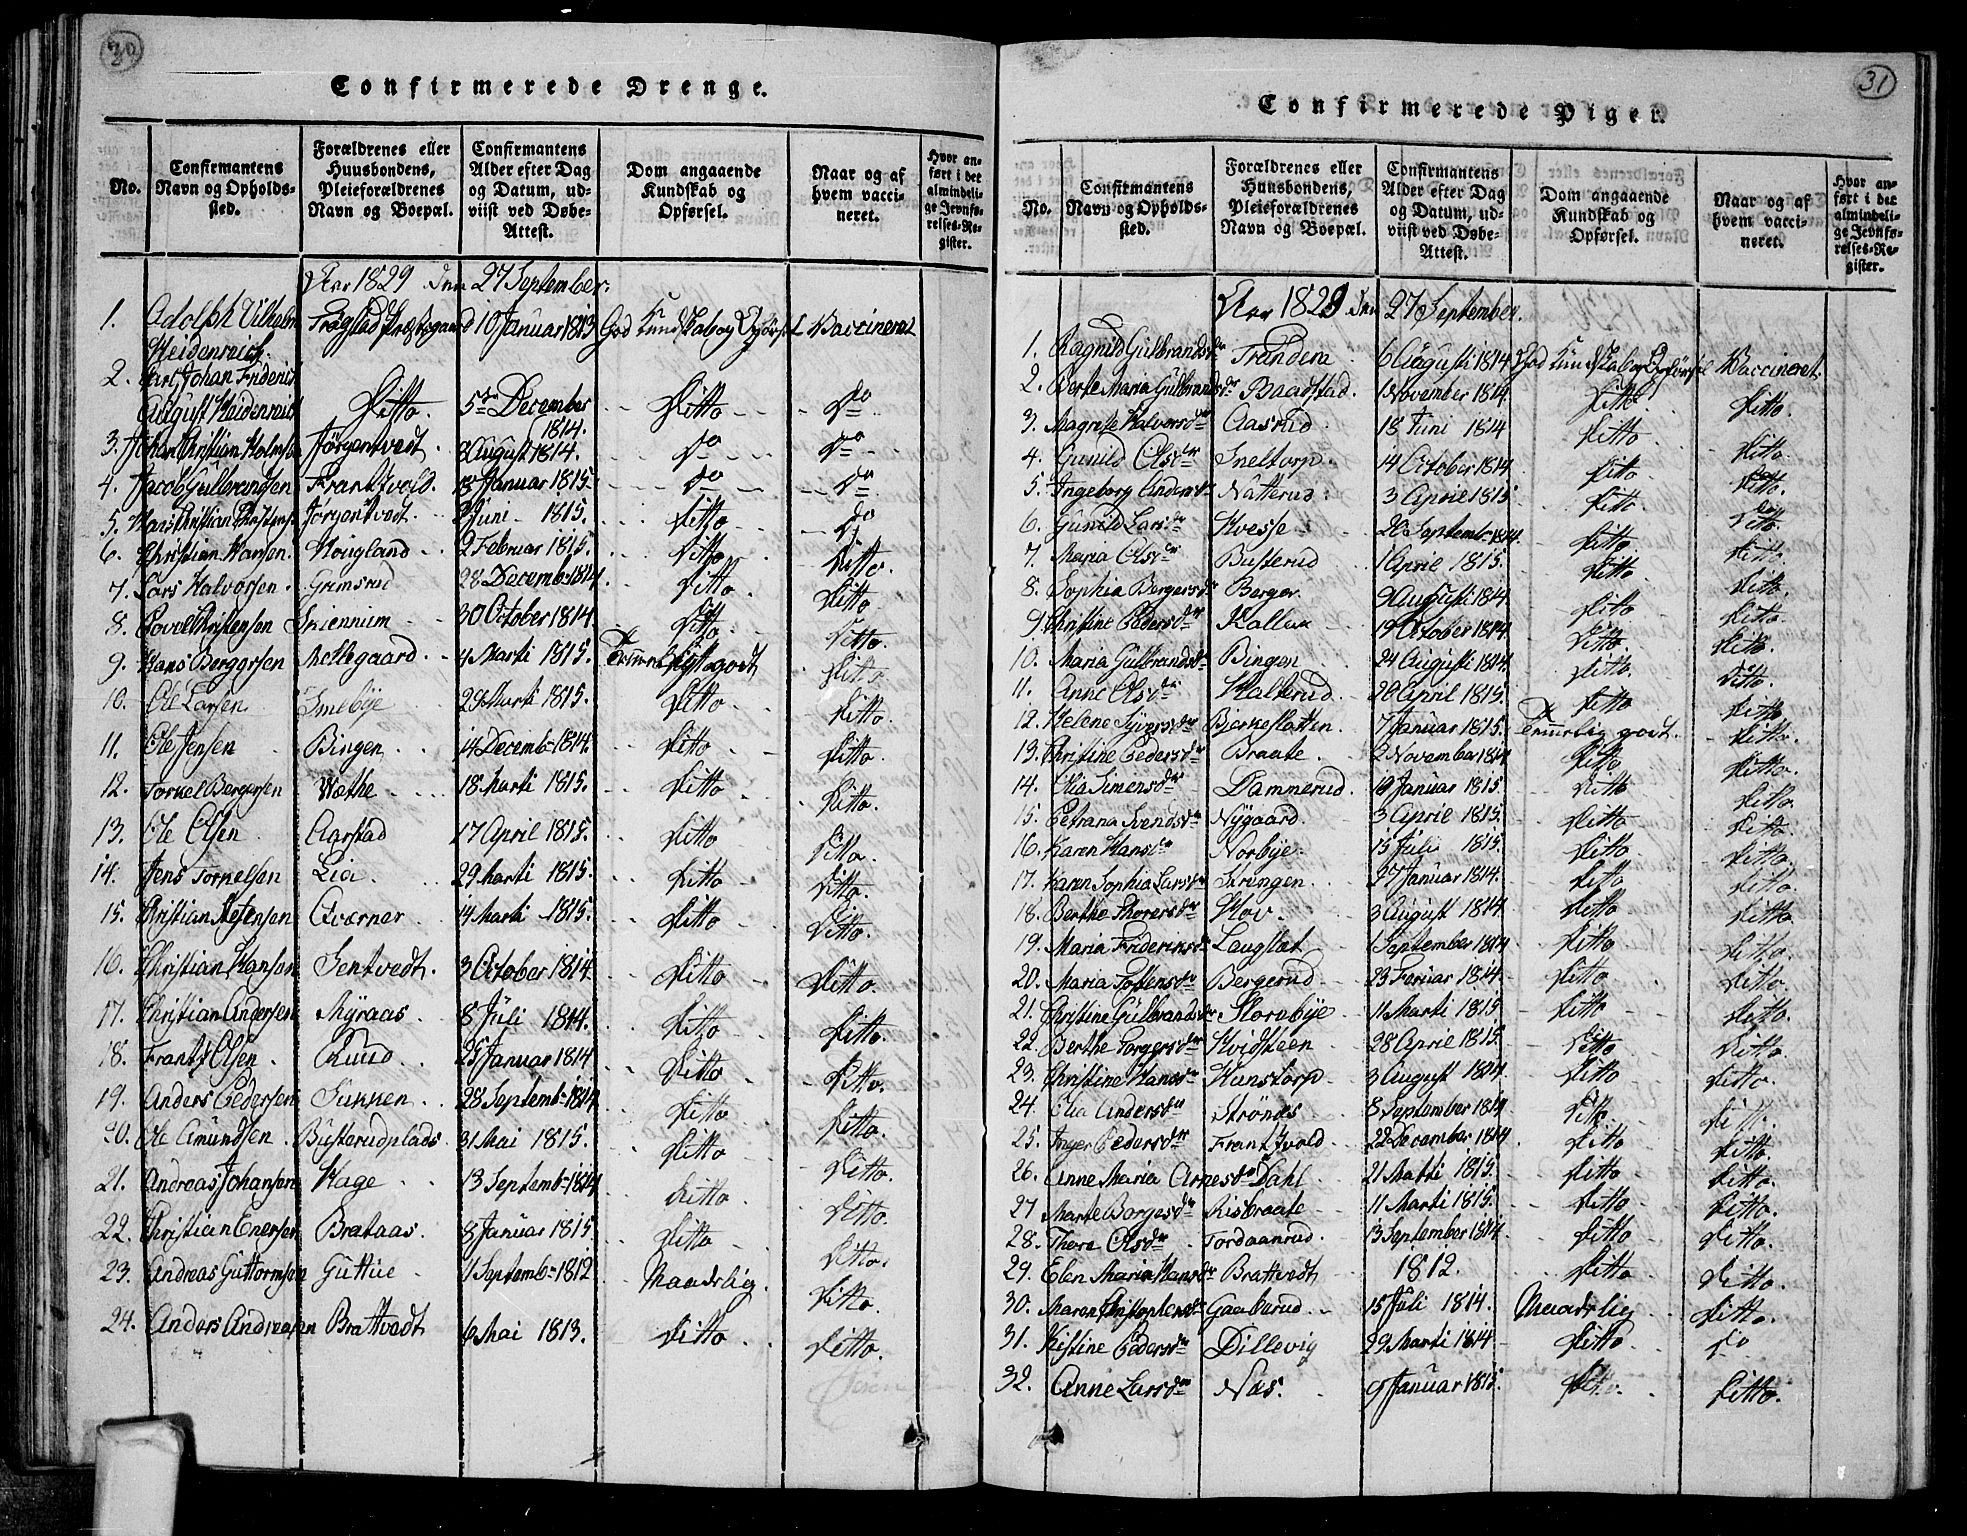 30
Confirmerede Drenge.
No.
Confirmantens Navn og Opholdssted.
Forældrenes eller Huusbondens, Pleieforældrenes Navn og Boepæl.
Confirmantens Alder efter Dag og Datum, udviist ved Døbe-Attest.
Dom angaaende Kundskab og Opførsel.
Naar og af hvem vaccineret.
Hvor anført i det almindelige Jevnførelses-Register.
Aar 1829 den 27 September.
1. Adolph Vilhelm Heidenreich. Trøgstad Præstegaard 10 Januar 1813 God Kundskab og Opførsel Vaccineret
2. Carl Johan Friderich August Heidenreich Ditto. 5te December 1814. Ditto Do
3. Johan Christian Jørgentvedt. 8 August 1814. Do Do
4. Jacob Gulbrandsen Frantzvold. 18 Januar 1815 Do Do
5. Hans Christian Christens Jørgentvedt Juni 1815. Ditto Do
6. Christian Hansen. Hougland 2 Februar 1815. Ditto Ditto.
7. Lars Halvorsen. Grimsrud 28 Decemb. 1814. Ditto Ditto.
8. Povel Christensen Skiennum 30 October 1814. Ditto Ditto.
9. Hans Bergersen Mellegaard 4 Marti 1815. Temmelig godt Ditto.
10. Ole Larsen Smebye 29 Marti 1815. Ditto Ditto.
11. Ole Jensen Bingen 14 Decemb. 1814. Ditto Ditto.
12. Tornel Bergersen Wæthe 18 Marti 1815. Ditto Ditto.
13. Ole Olsen Aarstad 17 April 1815. Ditto Ditto.
14. Jens Tornelsen Lia 29 Marti 1815. Ditto Ditto.
15. Christian Qværner 14 Marti 1815. Ditto Ditto.
16. Christian Hansen Sentvedt. 3 October 1814. Ditto Ditto.
17. Christian Andersen Myraas 8 Juli 1814. Ditto Ditto.
18. Frantz Olsen Ruud 25 Januar 1814 Ditto Ditto.
19. Anders Pedersen Sukken 28 Septemb. 1814 Ditto Ditto.
20. Ole Amundsen Busterudplads 31 Mai 1815. Ditto Ditto.
21. Andreas Johansen Hage 13 Septemb. 1814 Ditto Ditto.
22. Christian Enersen Brataas 8 Januar 1815 Ditto Ditto.
23. Andreas Guttormsen Guttue 11 Septemb. 1812 Maadelig. Ditto.
24. Anders Andreasen Brattvedt 6 Mai 1813. Ditto Ditto.
31
Confirmerede Piger.
No.
Confirmantens Navn og Opholdssted.
Forældrenes eller Huusbondens, Pleieforældrenes Navn og Boepæl.
Confirmantens Alder efter Dag og Datum, udviist ved Døbe-Attest.
Dom angaaende Kundskab og Opførsel.
Naar og af hvem vaccineret.
Hvor anført i det almindelige Jevnførelses-Register.
Aar 1829 den 27 September.
1. Ragnild Gulbrandsdr Trandem 6 Augusti 1814 God Kundskab og Opførsel Vaccineret.
2. Berte Maria Gulbrandsdr Baadstad. 1 November 1814. Ditto Ditto.
3. Magrete Halvorsdr Aasrud 18 Juni 1814 Ditto Ditto.
4. Gunild Olsdr Sneltorp 14 October 1814 Ditto Ditto.
5. Ingeborg Andersdr Natterud 3 April 1815 Ditto Ditto.
6. Gunild Larsdr Hvesse 20 Septemb. 1814. Ditto Ditto.
7. Maria Olsdr Busterud 1 April 1815. Ditto Ditto.
8. Sophia Bergersdr Berger 9 Augusti 1814. Ditto Ditto.
9. Christine Pedersdr Kallax 19 October 1814. Ditto Ditto.
10. Maria Gulbrandsdr Bingen 24 Augusti 1814. Ditto Ditto.
11. Anne Olsdr Halterud 20 April 1815. Ditto Ditto.
12. Helene Syversdr Bierkeslatten 7 Januar 1815. Temmelig godt. Ditto.
13. Christine Pedersdr Braate 2 November 1814 Ditto Ditto.
14. Elia Simensdr Dammerud 10 Januar 1815. Ditto Ditto.
15. Petrana Svendsdr Nygaard 3 April 1815. Ditto Ditto.
16. Karen Hansdr Norbye 15 Juli 1815. Ditto Ditto.
17. Karen Sophia Larsdr Strengen 27 Januar 1814. Ditto Ditto.
18. Berthe Thoresdr Hov. 3 August 1814. Ditto Ditto.
19. Maria Frideriksdr Laugslet 1 September 1814 Ditto Ditto.
20. Maria Bergerud 23 Feruar 1814 Ditto Ditto.
21. Christine Gulbrandsdr Storebye 11 Marti 1815 Ditto Ditto.
22. Berthe Torgersdr Hvidsteen 28 April 1815. Ditto Ditto.
23. Christine Hansdr Hunstorp 3 August 1814. Ditto Ditto.
24. Elia Andersdr Strønes 8 September 1814 Ditto Ditto.
25. Inger Pedersdr Frantzvold 22 December 1814 Ditto Ditto.
26. Anne Maria Arnesdr Dahl 21 Marti 1815. Ditto Ditto.
27 Marte Borgesdr Risbraate 11 Marti 1815. Ditto Ditto.
28. Thore Olsdr Tordaanrud 13 September 1814. Ditto Ditto.
29. Elen Maria Hansdr Brattvedt 1812. Ditto Ditto.
30. Maren Christophersdr Gaaserud 15 Juli 1814. Maadelig Ditto.
31. Kistine Pedersdr Dillevig 29 Marti 1814 Ditto Do
32. Anne Larsdr Næs. 9 Januar 1815 Ditto Ditto.